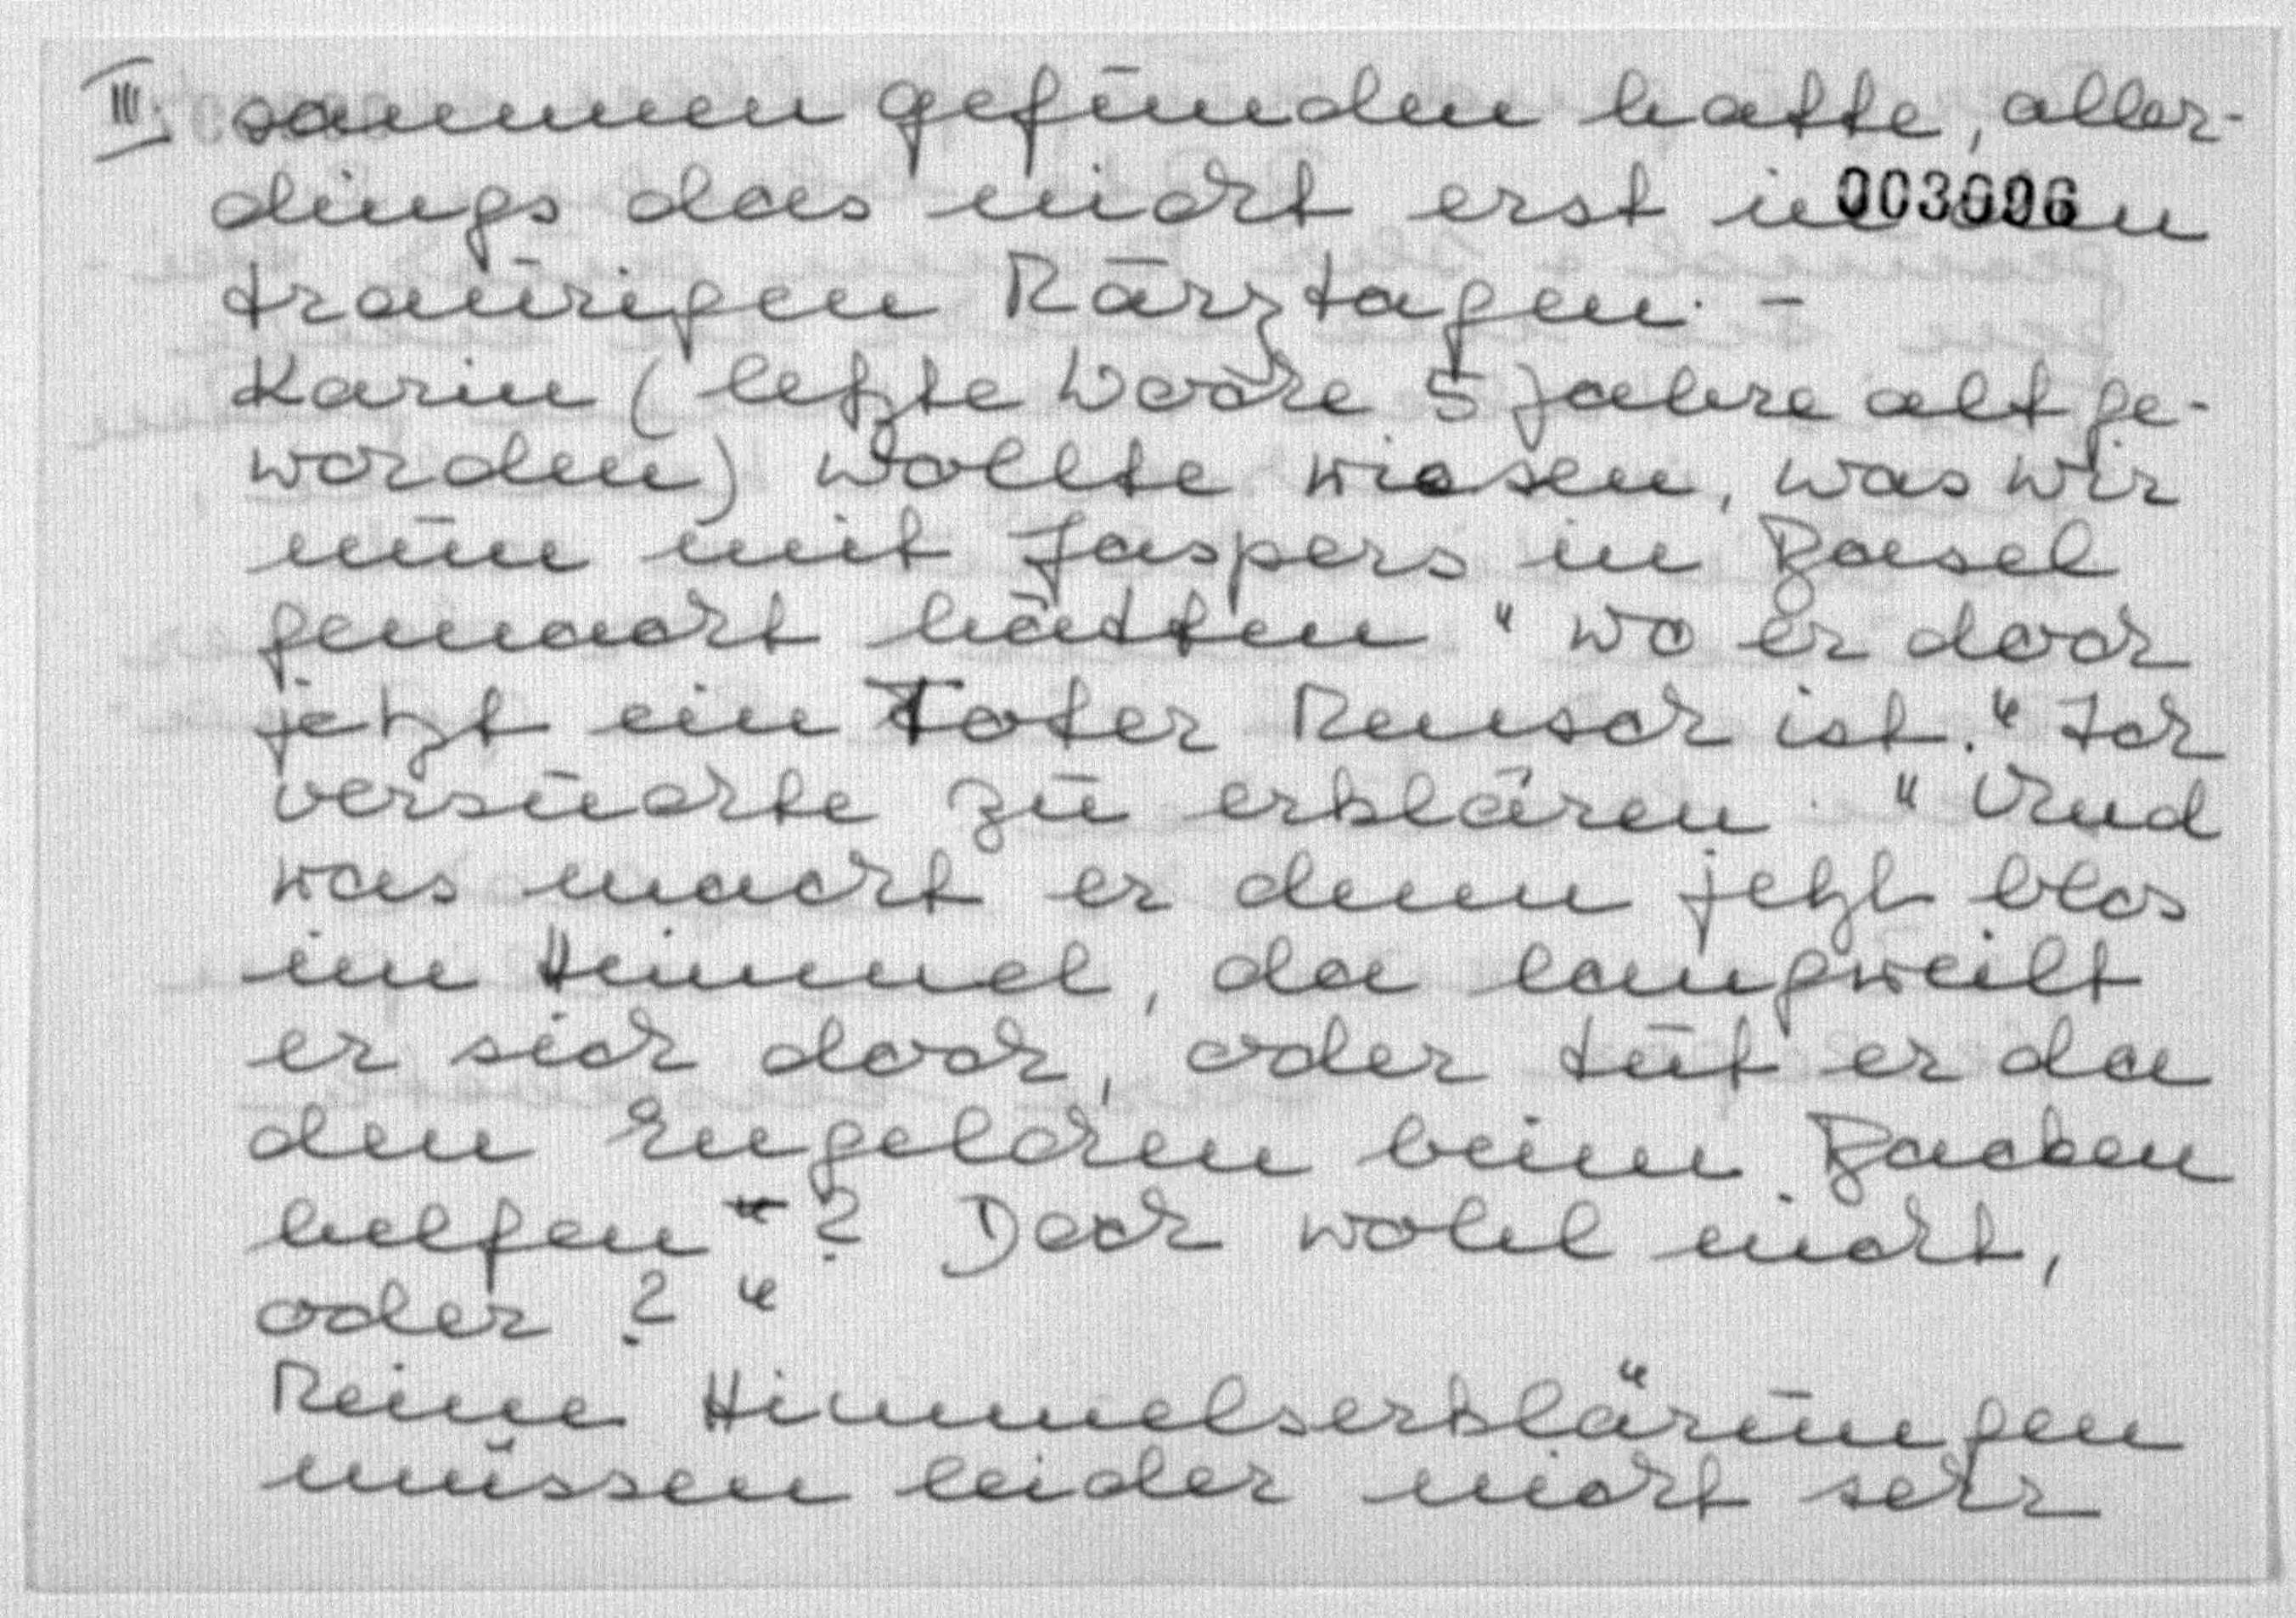 III. sammen gefunden hatte, aller-
dings das nicht erst in 003006
traurigen Märztagen. -
Karin (letzte Woche 5 Jahre alt ge-
worden) wollte wissen, was wir
nun mit Jaspers in Basel
gemacht hätten "wo er doch
jetzt ein Toter Mensch ist." Ich
versuchte zu erklären. "Und
was macht er denn jetzt blos
im Himmel, da langweilt
er sich doch, oder tut er da
den Engelchen beim Backen
helfen -? Doch wohl nicht,
oder?"
Meine Himmelserklärungen
müssen leider nicht sehr